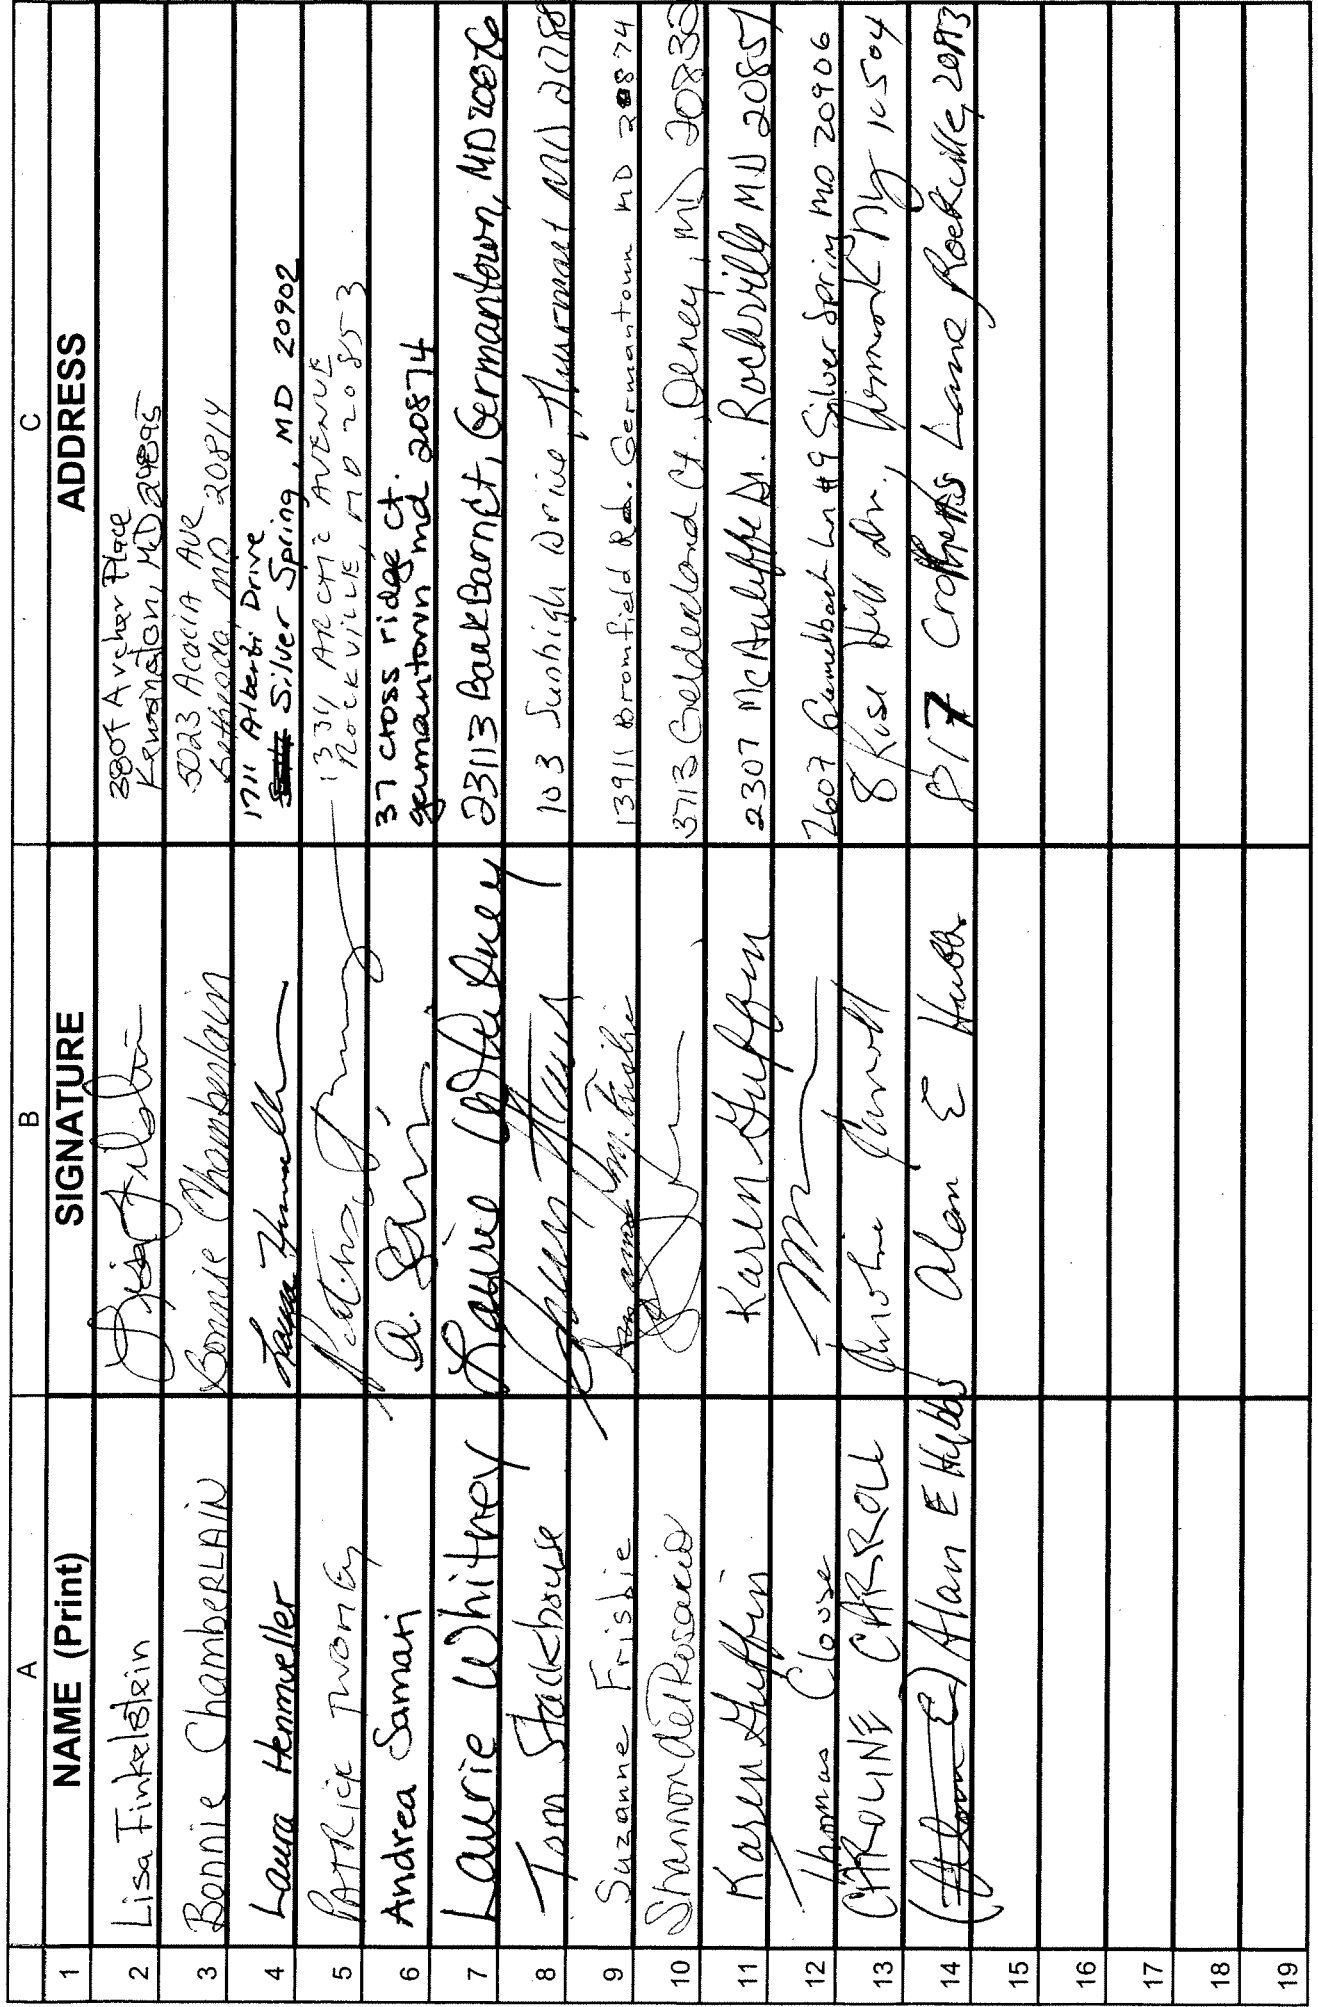 A B C
1 NAME (Print) SIGNATURE ADDRESS
2 Lisa Finkelstein 3807 Archer Place
Kensington, MD 20895
3 Bonnie ChamberLAIN Bonnie Chamberlain 5023 Acacia Ave
Bethesda, MD 20814
4 Laura Henmueller 1711 Alberti Drive
Silver Spring, MD 20902
5 PATRICK TWOMEY 1334 ARCTIC AVENUE
ROCKVILLE, MD 20853
6 Andrea Samari 37 cross ridge ct.
germantown md. 20874
7 Laurie Whitney Laurie Whitney 23113 Bank Barn Ct, Germantown, MD 20876
8 Tom Stackhouse 103 Sunhigh Drive Thurmont MD 21788
9 Suzanne Frisbie 13911 Bromfield Rd. Germantown MD 20874
10 Shannon delRosario 3713 Gelderland Ct. Olney, MD 20832
11 Karen Guffin Karen Guffin 2307 McAuliffe Dr. Rockville MD 20851
12 Thomas Clouse 2607 Ln #9 Silver Spring MD 20906
13 CAROLINE CARROLL 8 Hill Dr., Armonk NY 10504
14 Alan E Hubbs Alan E Hubbs 817 Crothers Lane Rockville,
15
16
17
18
19